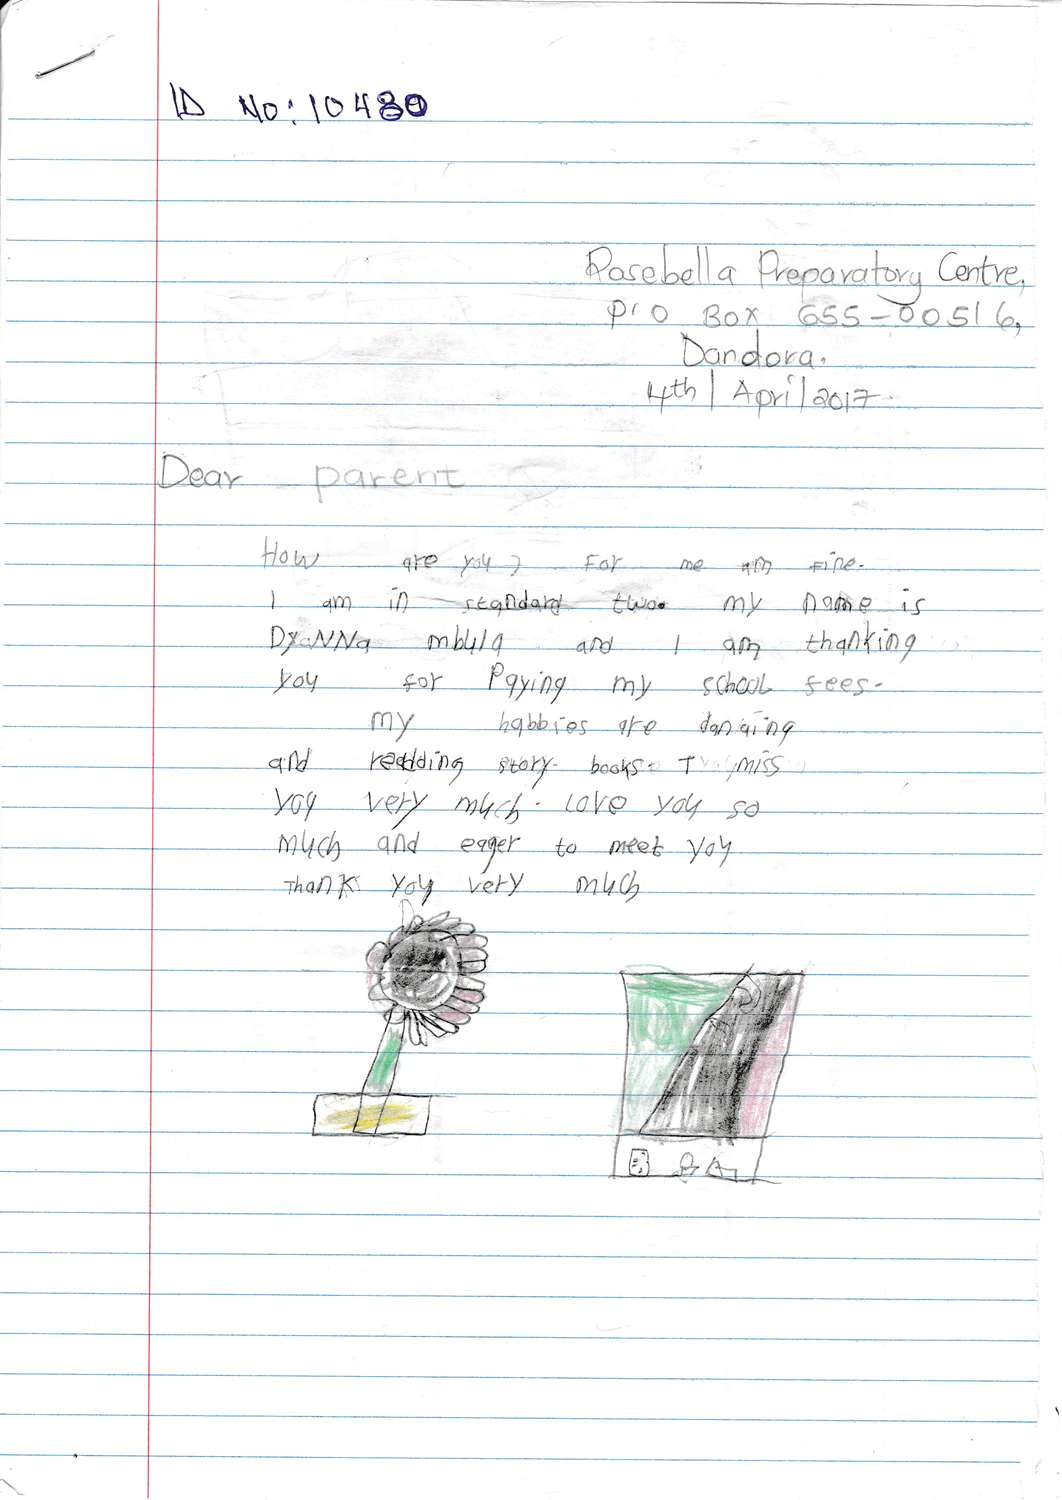 ID No: 10480
Rosebella Preparatory Centre,
P.O Box 655-00516,
Dandora.
4th/April/2017.
Dear parent
How are you? For me am fine.
I am in standard two. my name is
DyaNNa mbula and I am thanking
you for Paying my school fees.
my habbies are dancing
and reddding story books. I miss
you very much. Love you so
much and eager to meet you
Thank you very much